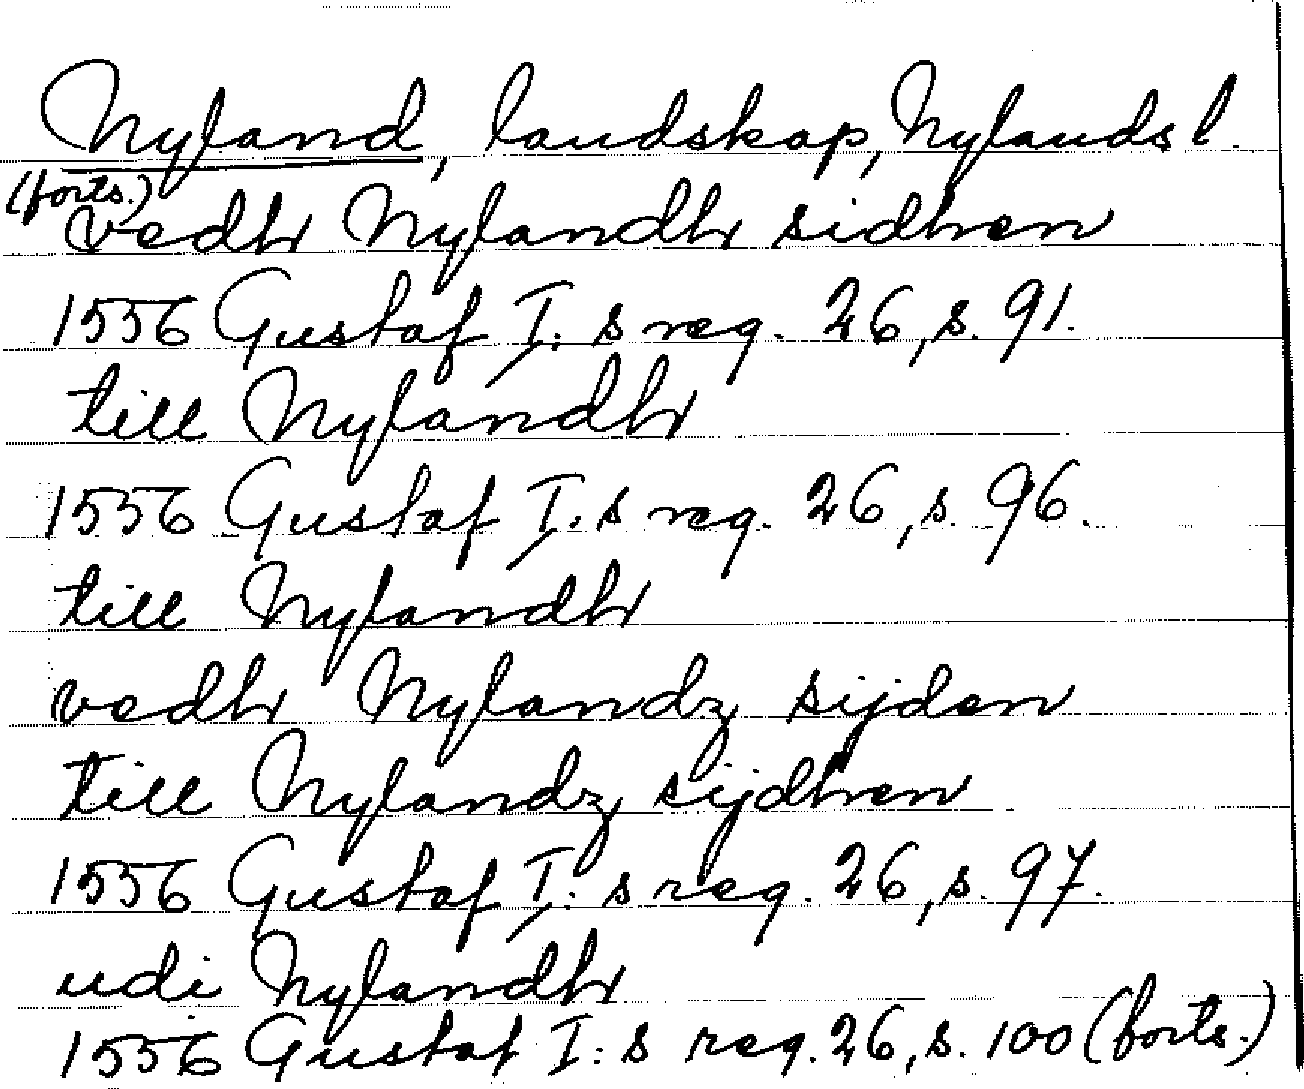 Nyland, landskap, Nylands l.
(forts.)
vedh Nylandh sidhen
1556 Gustaf I:s reg. 26, s. 91.
till Nylandh
1556 Gustaf I:s reg. 26, s. 96.
till Nylandh
vedh Nylandz sijden
till Nylandz sijdhen
1556 Gustaf I:s reg. 26, s. 97.
udi Nylandh
1556 Gustaf I:s reg. 26, s. 100 (forts.)